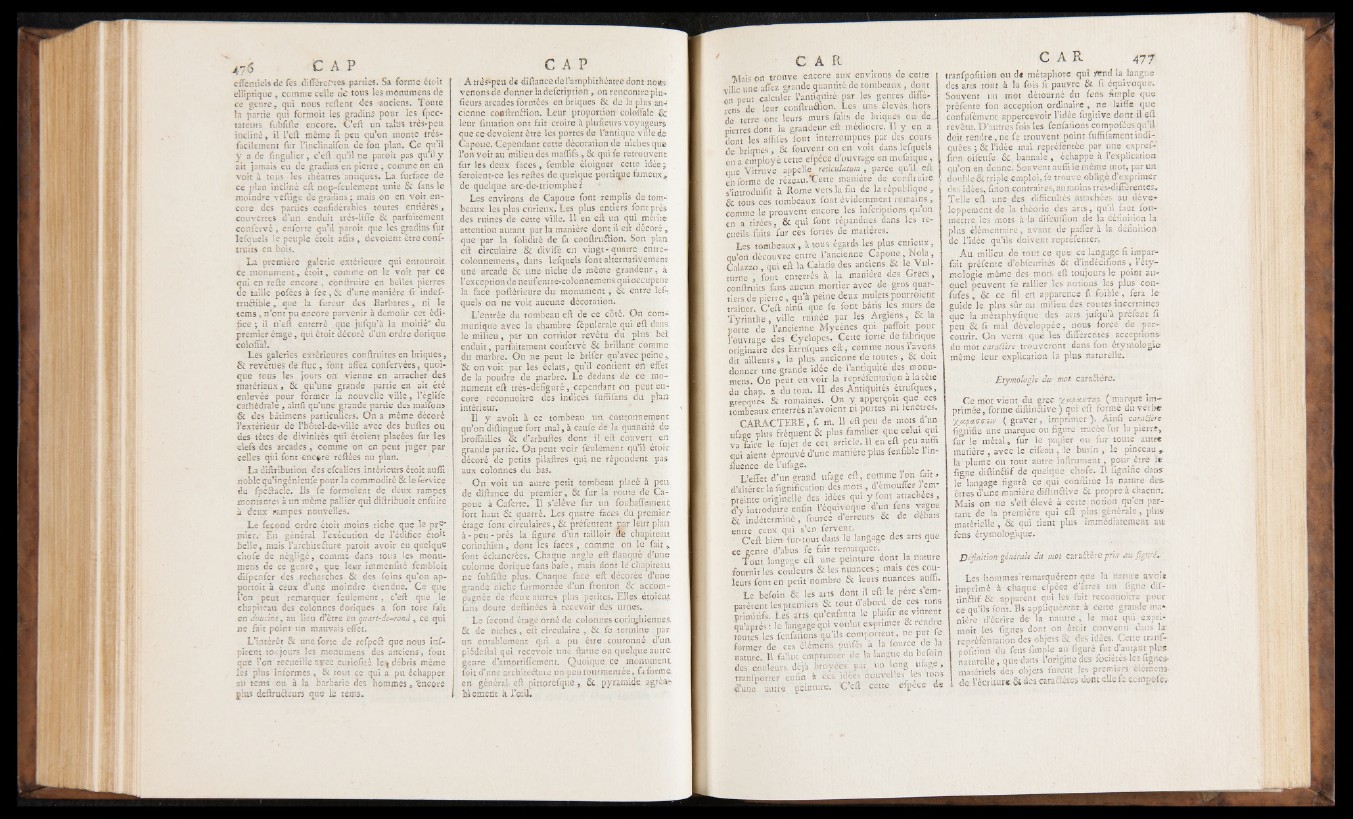 476 CAP CAP
essentiels de ses différentes parties. Sa forme étoit
elliptique, comme celle de tous les monumens de
ce genre, qui nous restent des anciens. Toute
la partie qui formoit les gradins pour les spec-
tateurs subsiste encore. C'est un talus très-peu
incliné, il l'est même si peu qu'on monte très-
facilement sur l'inclinaison de son plan. Ce qu'il
y a de singulier, c'est qu'il ne paroit pas qu'il y
ait jamais eu de gradins en pierre, comme on en
voit à tous les théatres antiques. La surface de
ce plan incliné est non-seulement unie & sans le
moindre vestige de gradins; mais on en voit en-
core des parties considérables toutes entières,
couvertes d'un enduit très-lisse & parfaitement
conservé, ensorte qu'il paroît que les gradins sur
lesquels le peuple étoit assis, devoient être cons-
truits en bois.
La première galerie extérieure qui entouroit
ce monument, étoit, comme on le voit par ce
qui en reste encore, construite en belles pierres
de taille posées à sec, & d'une manière si indes-
tructible, que la fureur des Barbares, ni le
tems, n'ont pu encore parvenir à démolir cet édi-
fice; il n'est enterré que jusqu'à la moitié du
premier étage, qui étoit décoré d'un ordre dorique
colossal.
Les galeries extérieures construites en briques,
& revêtues de stuc, sont assez conservées, quoi-
que tous les jours on vienne en arracher des
matériaux, & qu'une grande partie en ait été
enlevée pour former la nouvelle ville, l'église
cathédrale, ainsi qu'une grande partie des maisons
& des bâtimens particuliers. On a même décoré
l'extérieur de l'hôtel-de-ville avec des bustes ou
des têtes de divinités qui étoient placées sur les
clefs des arcades, comme on en peut juger par
celles qui sont encore restées au plan.
La distribution des escaliers intérieurs étoit aussi
noble qu'ingénieuse pour la commodité & le service
du spectacle. Ils se formoient de deux rampes
montantes à un même pallier qui distribuoit ensuite
à deux rampes nouvelles.
Le second ordre étoit moins riche que le pre-
mier. En général l'exécution de l'édifice étoit
belle, mais l'architecture paroit avoir eu quelque
chose de négligé, comme dans tous les monu-
mens de ce genre, que leur immensité sembloit
dispenser des recherches & des soins qu'on ap-
portoit à ceux d'une moindre étendue. Ce que
l'on peut remarquer seulement, c'est que le
chapiteau des colonnes doriques a son tore fait
en doucine, au lieu d'être en quart-de-rond, ce qui
ne fait point un mauvais effet.
L'intérêt & une sorte de respect que nous ins-
pirent toujours les monumens des anciens, font
que l'on recueille avec curiosité les débris même
les plus informes, & tout ce qui a pu échapper
au tems ou à la barbarie des hommes, encore
plus destructeurs que le tems.
A très-peu de distance de l'amphithéatre dont nous
venons de donner la description, on rencontre plu-
sieurs arcades formées en briques & de la plus an-
cienne construction. Leur proportion colossale &
leur situation ont fait croire à plusieurs voyageurs
que ce devoient être les portes de l'antique ville de
Capoue. Cependant cette décoration de niches que
l'on voit au milieu des massifs, & qui se retrouvent
sur les deux faces, semble éloigner cette idée;
seroient-ce les restes de quelque portique fameux,
de quelque arc-de-triomphe?
Les environs de Capoue sont remplis de tom-
beaux les plus curieux. Les plus entiers sont près
des ruines de cette ville. Il en est un qui mérite
attention autant par la manière dont il est décoré,
que par la solidité de sa construction. Son plan
est circulaire & divisé en vingt-quatre entre-
colonnemens, dans lesquels sont alternativement
une arcade & une niche de même grandeur, à
l'exception de neuf entre-colonnemens qui occupent
la face postérieure du monument, & entre les-
quels on ne voit aucune décoration.
L'entrée du tombeau est de ce côté. On com-
munique avec la chambre sépulcrale qui est dans
le milieu, par un corridor revêtu du plus bel
enduit, parfaitement conservé & brillant comme
du marbre. On ne peut le briser qu'avec peine,
& on voit par les éclats, qu'il contient en effet
de la poudre de marbre. Le dedans de ce mo-
nument est très-défiguré, cependant on peut en-
core reconnoître des indices suffisans du plan
intérieur.
Il y avoit à ce tombeau un couronnement
qu'on distingue fort mal, à cause de la quantité de
broussailles & d'arbustes dont il est couvert en
grande partie. On peut voir seulement qu'il étoit
décoré de petits pilastres qui ne répondent pas
aux colonnes du bas.
On voit un autre petit tombeau placé à peu
de distance du premier, & sur la route de Ca-
poue à Caserte. Il s'élève sur un soubassement
fort haut & quarré. Les quatre faces du premier
étage sont circulaires, & présentent par leur plan
à-peu-près la figure d'un tailloir de chapiteau
corinthien, dont les faces, comme on le sait,
sont échancrées. Chaque angle est flanqué d'une
colonne dorique sans base, mais dont le chapiteau
ne subsiste plus. Chaque face est décorée d'une
grande niche surmontée d'un fronton & accom-
pagnée de deux autres plus petites. Elles étoient
sans doute destinées à recevoir des urnes.
Le second étage orné de colonnes corinthiennes
& de niches, est circulaire, & se termine par
un entablement qui a pu être couronné d'un
piédestal qui recevoit une statue ou quelque autre
genre d'amortissement. Quoique ce monument
soit d'une architecture un peu tourmentée, sa forme
en général est pittoresque, & pyramide agréa-
blement à l'œil.
CAR CAR 477
Mais on trouve encore aux environs de cette
ville une assez grande quantité de tombeaux, dont
on peut calculer l'antiquité par les genres diffé-
rens de leur construction. Les uns élevés hors
de terre ont leurs murs faits de briques ou de
pierres dont la grandeur est médiocre. Il y en a
dont les assises sont interrompues par des cours
de briques, & souvent on en voit dans lesquels
on a employé cette espèce d'ouvrage en mosaïque,
que Vitruve appelle reticulatum, parce qu'il est
en forme de réseau. Cette manière de construire
s'introduisit à Rome vers la fin de la république,
& tous ces tombeaux sont évidemment romains,
comme le prouvent encore les inscriptions qu'on
en a tirées, & qui sont répandues dans les re-
cueils faits sur ces sortes de matières.
Les tombeaux, à tous égards les plus curieux,
qu'on découvre entre l'ancienne Capoue, Nola,
Calazzo, qui est la Calatia des anciens & le Vul-
turne, sont enterrés à la manière des Grecs,
construits sans aucun mortier avec de gros quar-
tiers de pierre, qu'à peine deux mulets pourroient
trainer. C'est ainsi que se sont bâtis les murs de
Tyrinthe, ville ruinée par les Argiens, & la
porte de l'ancienne Mycènes qui passoit pour
l'ouvrage des Cyclopes. Cette sorte de fabrique
originaire des Etrusques est, comme nous l'avons
dit ailleurs, la plus ancienne de toutes, & doit
donner une grande idée de l'antiquité des monu-
mens. On peut en voir la représentation à la tête
du chap. 2 du tom. II des Antiquités étrusques,
grecques & romaines. On y apperçoit que ces
tombeaux enterrés n'avoient ni portes ni fenêtres.
CARACTERE, s. m. Il est peu de mots d'un
usage plus fréquent & plus familier que celui qui
va faire le sujet de cet article. Il en est peu aussi
qui aient éprouvé d'une manière plus sensible l'in-
fluence de l'usage.
L'effet d'un grand usage est, comme l'on sait,
d'altérer la signification des mots, d'émousser l'em-
preinte originelle des idées qui y sont attachées,
d'y introduire enfin l'équivoque d'un sens vague
& indéterminé, source d'erreurs & de débats
entre ceux qui s'en servent.
C'est bien sur-tout dans le langage des arts que
ce genre d'abus se fait remarquer.
Tout langage est une peinture dont la nature
fournit les couleurs & les nuances; mais ces cou-
leurs sont en petit nombre & leurs nuances aussi.
Le besoin & les arts dont il est le père s'em-
parèrent les premiers & tout d'abord de ces tons
primitifs. Les arts qu'enfanta le plaisir ne vinrent
qu'après: le langage qui voulut exprimer & rendre
toutes les sensations qu'ils comportent, ne put se
former de ces élémens puisés à la source de la
nature. Il fallut emprunter de la langue du besoin
des couleurs déjà broyées par un long usage,
transporter enfin à ces idées nouvelles les tons
d'une autre peinture. C'est cette espèce de
transposition ou de métaphore qui rend la langue
des arts tout à la fois si pauvre & si équivoque.
Souvent un mot détourné du sens simple que
présente son acception ordinaire, ne laisse que
confusément appercevoir l'idée fugitive dont il est
revêtu. D'autres fois les sensations composées qu'il
doit rendre, ne se trouvent point suffisamment indi-
quées; & l'idée mal représentée par une expres-
sion oiseuse & bannale, échappe à l'explication
qu'on en donne. Souvent aussi le même mot, par un
double & triple emploi, se trouve obligé d'exprimer
des idées, sinon contraires, au moins très-différentes.
Telle est une des difficultés attachées au déve-
loppement de la théorie des arts, qu'il faut sou-
mettre les mots à la discussion de la définition la
plus élémentaire, avant de passer à la définition
de l'idée qu'ils doivent représenter.
Au milieu de tout ce que ce langage si impar-
fait présente d'obscurités & d'indécisions, l'éty-
mologie même des mots est toujours le point au-
quel peuvent se rallier les notions les plus con-
fuses, & ce fil en apparence si foible, sera le
guide le plus sûr au milieu des routes incertaines
que la métaphysique des arts jusqu'à présent si
peu & si mal développée, nous force de par-
courir. On verra que les différentes acceptions
du mot caractère trouveront dans son étymologie
même leur explication la plus naturelle.
Etymologie du mot caractère.
Ce mot vient du grec (marque im-
primée, forme distinctive) qui est formé du verbe
(graver, imprimer). Ainsi caractère
signifie une marque ou figure tracée sur la pierre,
sur le métal, sur le papier ou sur toute autre
matière, avec le ciseau, le burin, le pinceau,
la plume ou tout autre instrument, pour être le
signe distinctif de quelque chose. Il signifie dans
le langage figuré ce qui constitue la nature des
êtres d'une manière distinctive & propre à chacun.
Mais on ne s'est élevé à cette notion qu'en par-
tant de la première qui est plus générale, plus
matérielle, & qui tient plus immédiatement au
sens étymologique.
Définition générale du mot caractère pris au figuré.
Les hommes remarquèrent que la nature avoit
imprimé à chaque espèce d'êtres un signe dis-
tinctif & apparent qui les fait reconnoître pour
ce qu'ils sont. Ils appliquèrent à cette grande ma-
nière d'écrire de la nature, le mot qui expri-
moit les signes dont on étoit convenu dans la
représentation des objets & des idées. Cette trans-
position du sens simple au figuré fut d'autant plus
naturelle, que dans l'origine des sociétés les signes
matériels des objets furent les premiers élémens
de l'écriture & des caractères dont elle se compose.